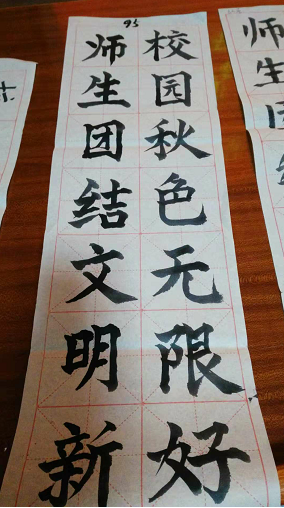 95
校园秋色无限好
师生团结文明新
师生